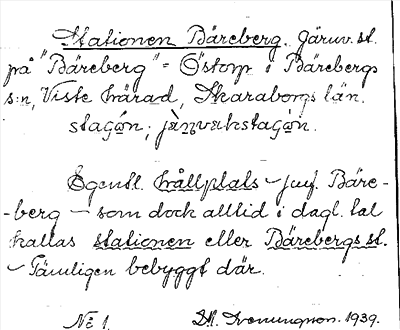 Stationen Bäreberg. Järnv. st.
på "Bäreberg" = Östorp i Bärebergs
s:n, Viste härad, Skaraborgs län.
stagón; jàrnvakstagón.
Egentl. hållplats – jmf. Bäre-
-berg – som dock alltid i dagl. tal
kallas stationen eller Bärebergs st.
– Tämligen bebyggt där.
No 1. 1939.